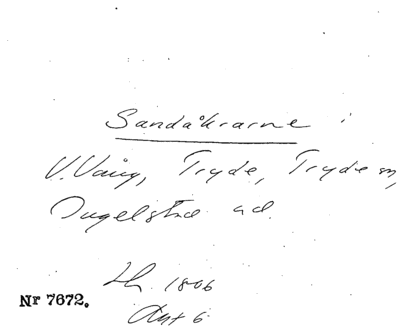 Sandåkrarne i
V. Vång, Tryde, Tryde sn,
Ingelstad hd.
1806
Nr 7672.
Akt 6